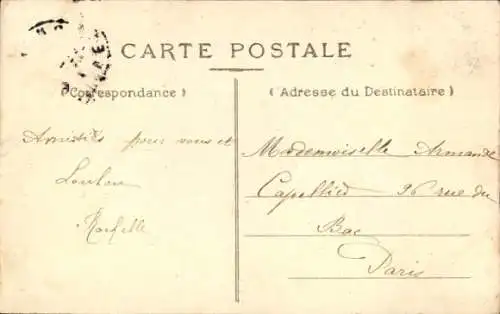 CARTE POSTALE
(Correspondance)
(Adresse du Destinataire)
Amitiés pour vous et
Loulou
Mademoiselle Armande
96 rue du
Bac
Paris